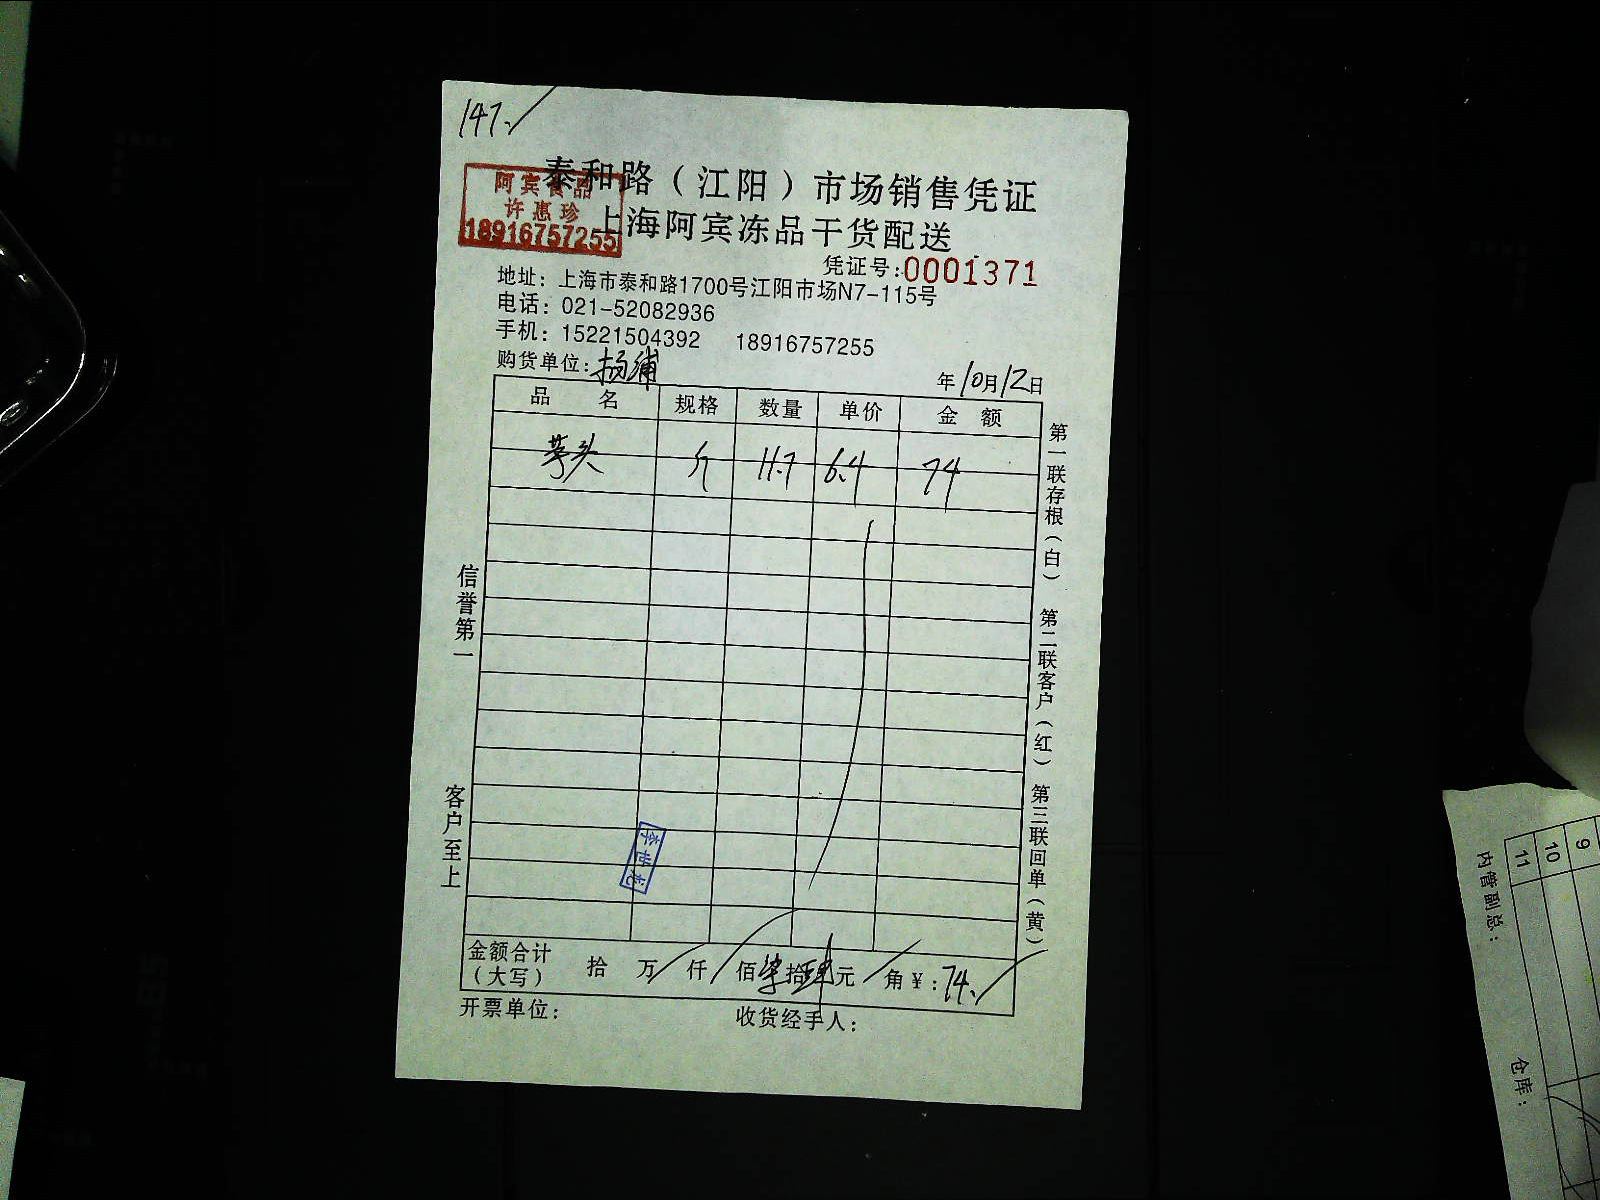 147.
泰和路（江阳）市场销售凭证
阿宾食品
许惠珍
18916757255
上海阿宾冻品干货配送
凭证号:0001371
地址：上海市泰和路1700号江阳市场N7-115号
电话：021-52082936
手机：15221504392 18916757255
购货单位：杨浦 年10月12日
品 名 规格 数量 单价 金 额
芋头 斤 11.7 6.4 74
信誉第一
客户至上
第一联存根（白）
第二联客户（红）
第三联回单（黄）
李世龙
金额合计（大写） 拾 万 仟 佰柒拾肆元 角￥：74.
开票单位： 收货经手人：
9
10
11
内管副总：
仓库：